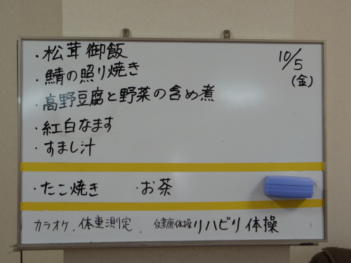 ・松茸御飯
10/5
(金)
・鯖の照り焼き
・高野豆腐と野菜の含め煮
・紅白なます
・すまし汁
・たこ焼き ・お茶
カラオケ . 体重測定 . 健康体操 リハビリ体操